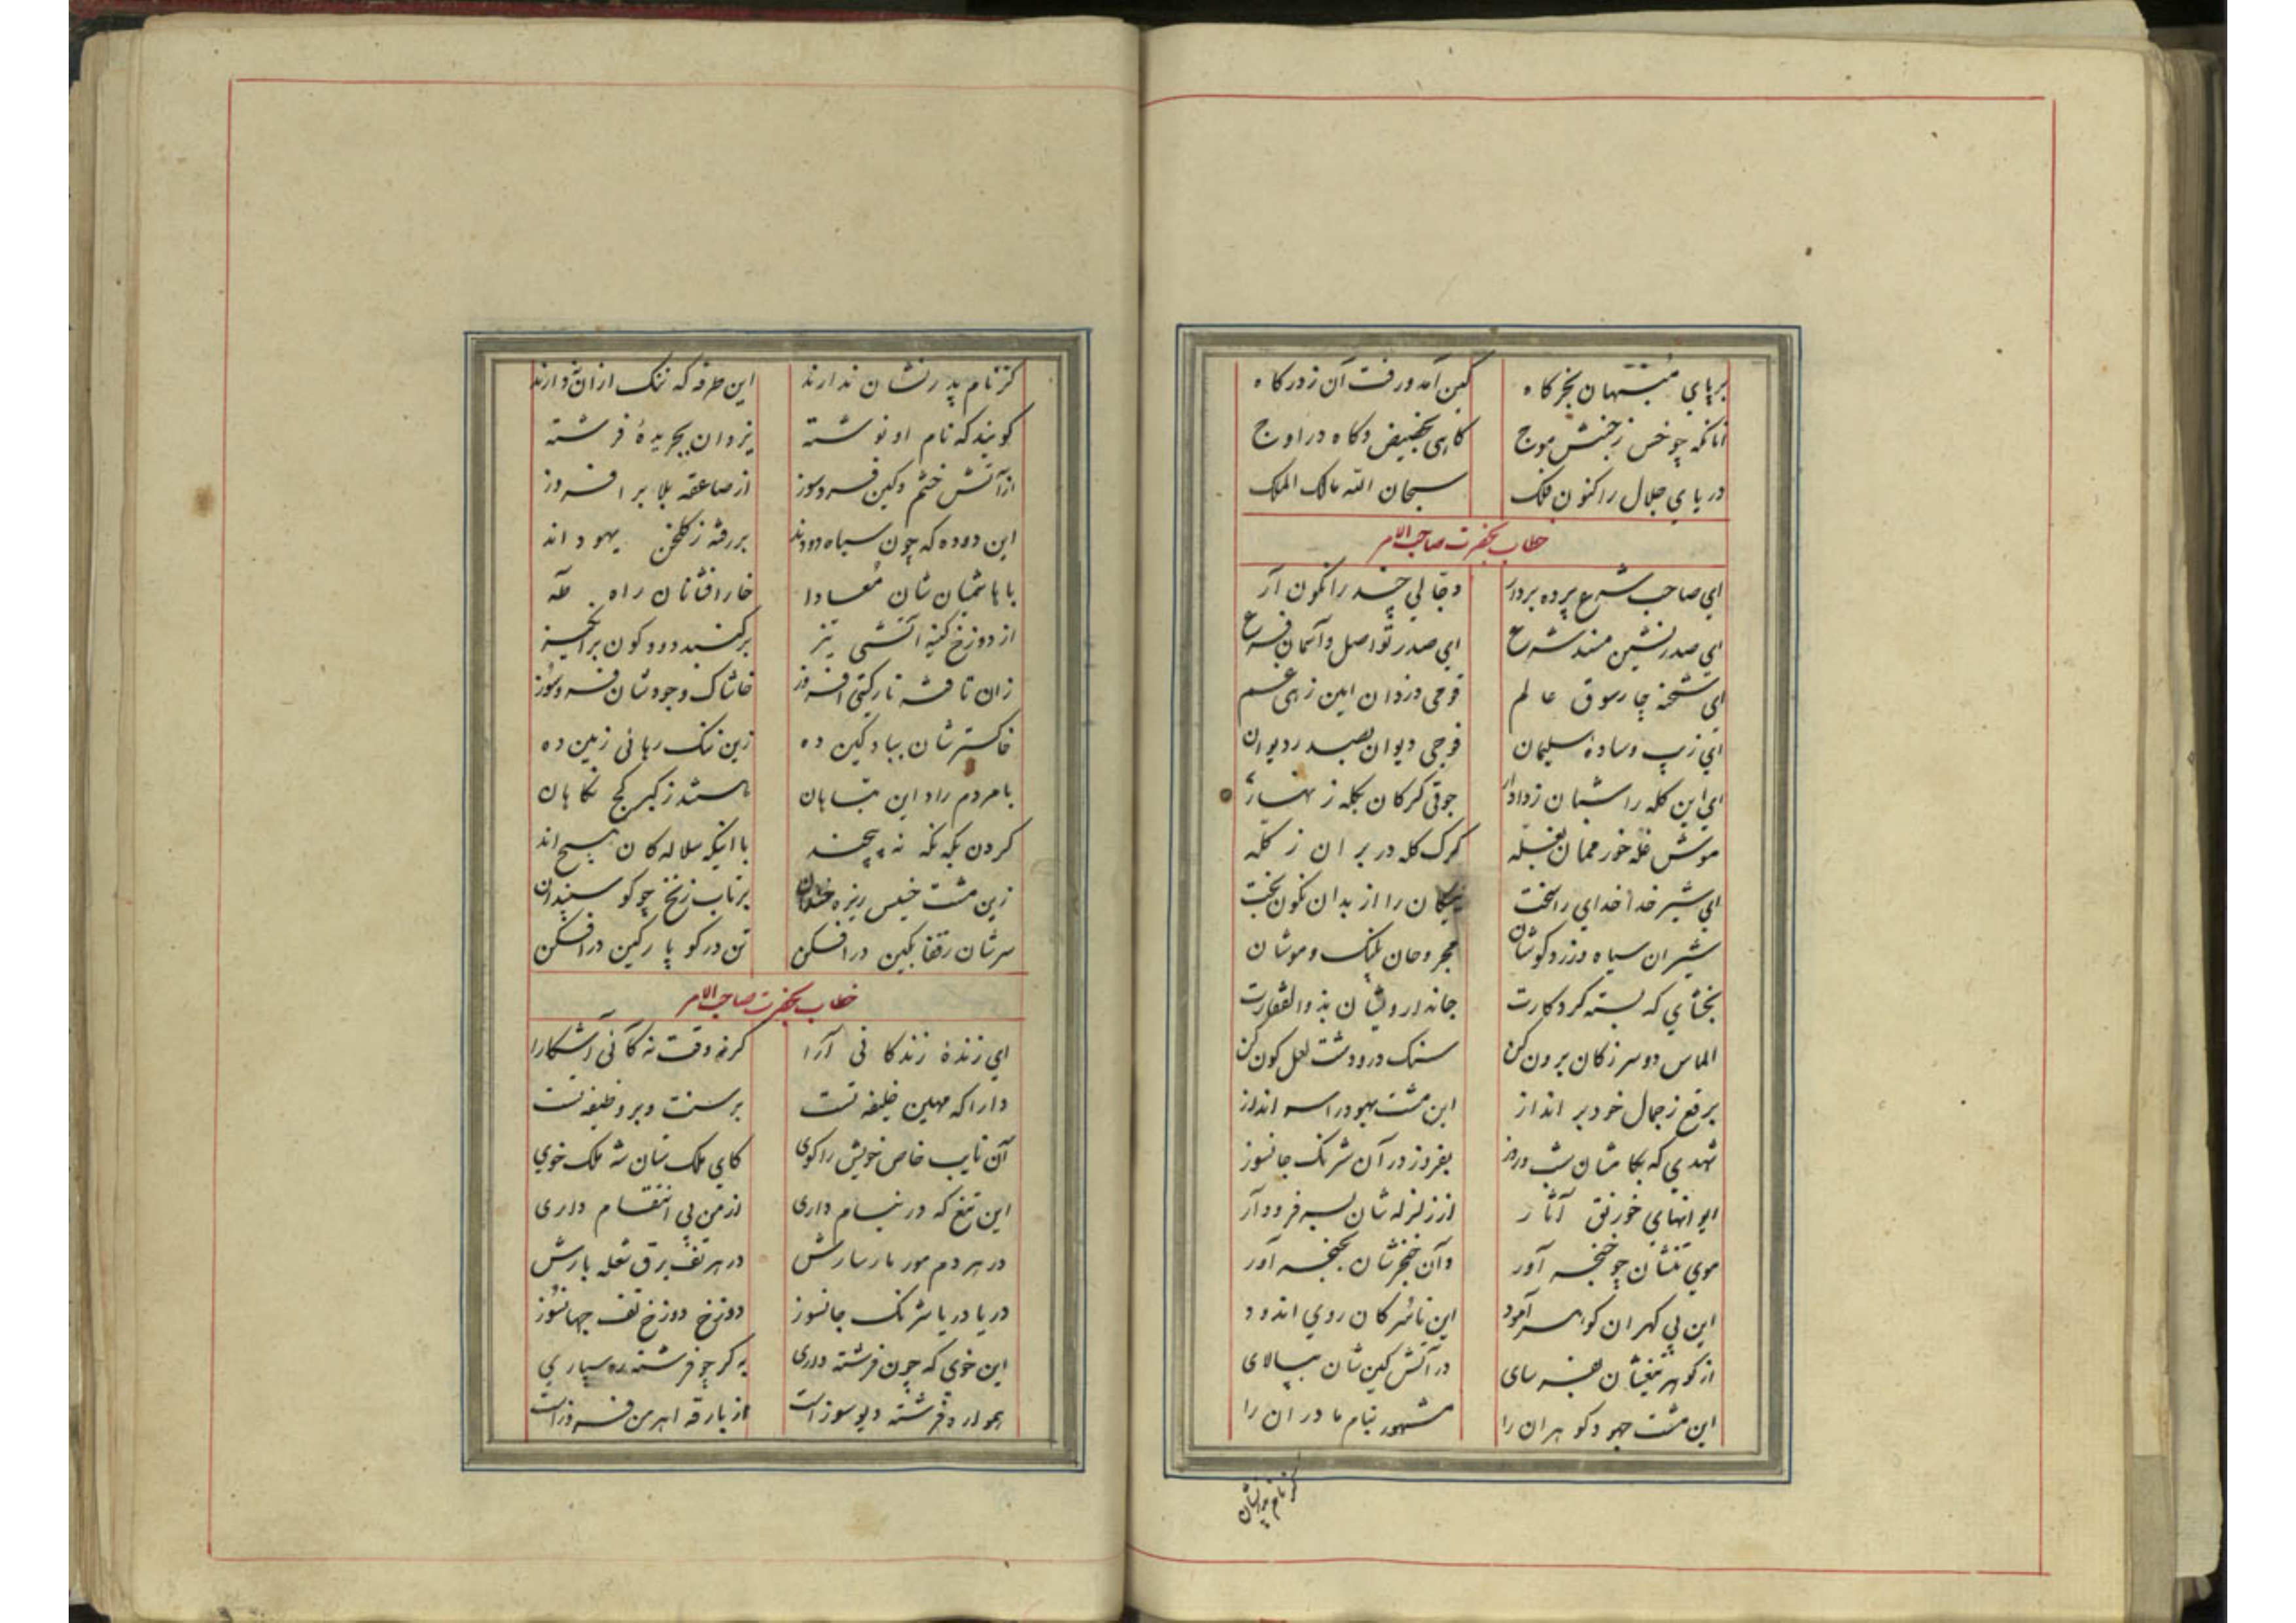 برپای منتهان بخرکاه
کین آمد ورفت آن زدرکاه
آنانکه چو خس زجنبش موج
کاهی بحضیض وکاه در اوج
دریای جلال را کنون فلک
سبحان الله مالک الملک
خطاب بحضرت صاحب الامر
ای صاحب شرع پرده بردار
دجالی چند را نکون آر
ای صدرنشین مسند شرع
ای صدر تو اصل وآسمان فرع
ای شحنه چارسوق عالم
فوجی دزدان این زهی غم
ای زیب وسادهٔ سلیمان
فوجی دیوان بصدر دیوان
ای این کله را شبان زدادار
جوقی کرکان بکله زنهار
موش غله خور
کرک کله در بر ان ز کله
ای شیر خدا خدای را سخت
نیکان را از بدان نکون بخت
شیران سیاه و زرد کوشان
مجروحان پلنک و موشان
بخشای که بسته کردکارت
جاندارویشان بذوالفقارت
الماس دوسر زکان برون کن
سنک در ودشت لعل کون کن
برقع زجمال خود بر انداز
این مشت یهود را سر انداز
شهدی که بکامشان شب وروز
بفروز در آن شرنک جانسوز
ایوانهای خورنق آثار
از زلزله شان بسر فرود آر
موی تنشان چو خنجر آور
وآن خنجرشان بحنجر آور
این بی کهران کوهر آمود
این ناسرکان روی اندود
از کوهر تیغشان هنر سای
در آتش کین شان بپالای
این مشت جهود کوهران را
مشهور بنام مادران را
کز نام پدرنشان
کز نام پدر نشان ندارند
این طرفه که ننک از آن ندارند
کویند که نام او نوشته
یزدان بجریدهٔ فرشته
از آتش خشم وکین فروسوز
از صاعقه بلا بر افروز
این دوده که چون سیاه دودند
بر رفته ز کلخن یهوداند
با هاشمیان شان معادا
خار افشانان راه طه
از دوزخ کینه آتشی تیز
بر کنبد دود کون برانکیز
زان تافته نار کیتی افروز
خاشاک وجودشان فروسوز
خاکسترشان بباد کین ده
زین ننک رهائی زمین ده
با مردم راد این تباهان
باشند ز کبر کج نکاهان
کردن بکه نکه نه پیچند
با اینکه سلاله کان هیچ اند
زین مشت خسیس ریزه
برتاب زنخ چو کوسپندان
سرشان زقفا بکین در افکن
تن در کو پارکین در افکن
خطاب بحضرت صاحب الامر
ای زندهٔ زندکانی آرا
کر نه وقت نه کآئی آشکارا
دارا که مهین خلیفه تست
بر سنت وبر وظیفه تست
آن نایب خاص خویش را کوی
کای ملک ستان شه ملک خوی
این تیغ که در نیام داری
از من پی انتقام داری
در هر دم مور مارسارش
در هر تف برق شعله بارش
دریا دریا شرنک جانسوز
دوزخ دوزخ تف جهانسوز
این خوی که چون فرشته داری
به کر چو فرشته ره سپاری
همواره فرشته دیو سوز است
از بارقه اهرمن فروز است